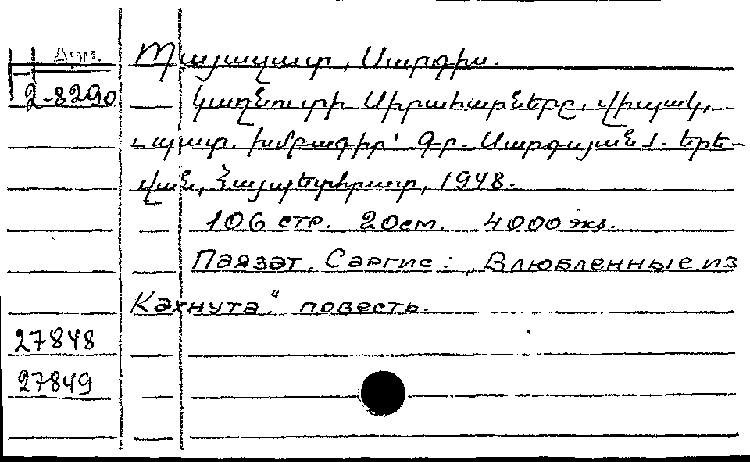 Պայազատ, Սարգիս.
2-8290
Կաղնուտի Սիրահարները. վիպակ,
պատ. խմբագիր՝ Գր. Սարգսյան/. Երե-
վան, Հայպետհրատ, 1948.
106 стр. 20 см. 4000 экз.
Паязат, Саргис: „Влюбленные из
Кахнута" повесть.
27848
27849